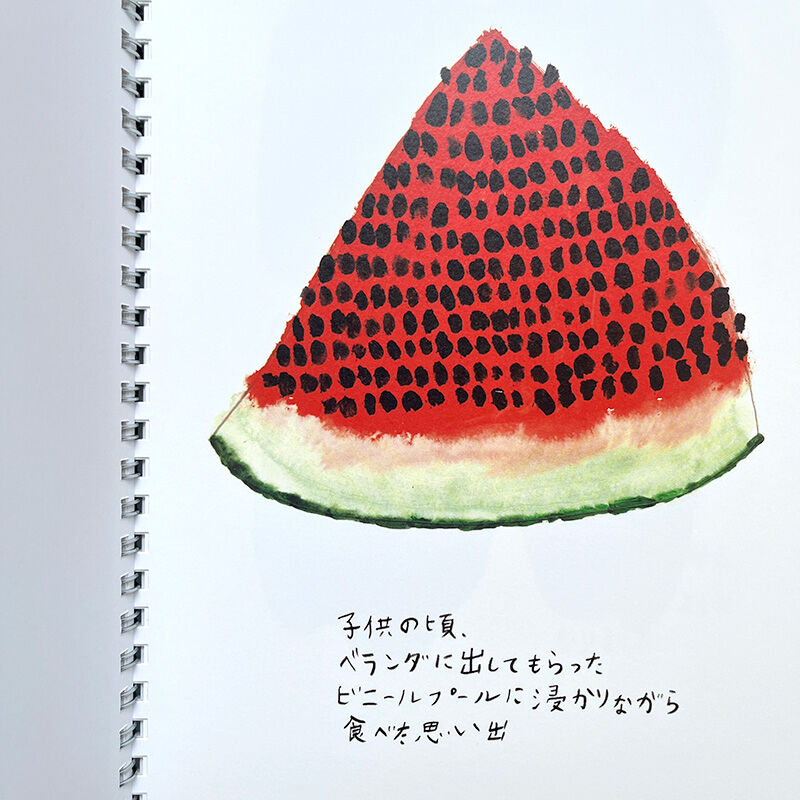 子供の頃、
ベランダに出してもらった
ビニールプールに浸かりながら
食べた思い出